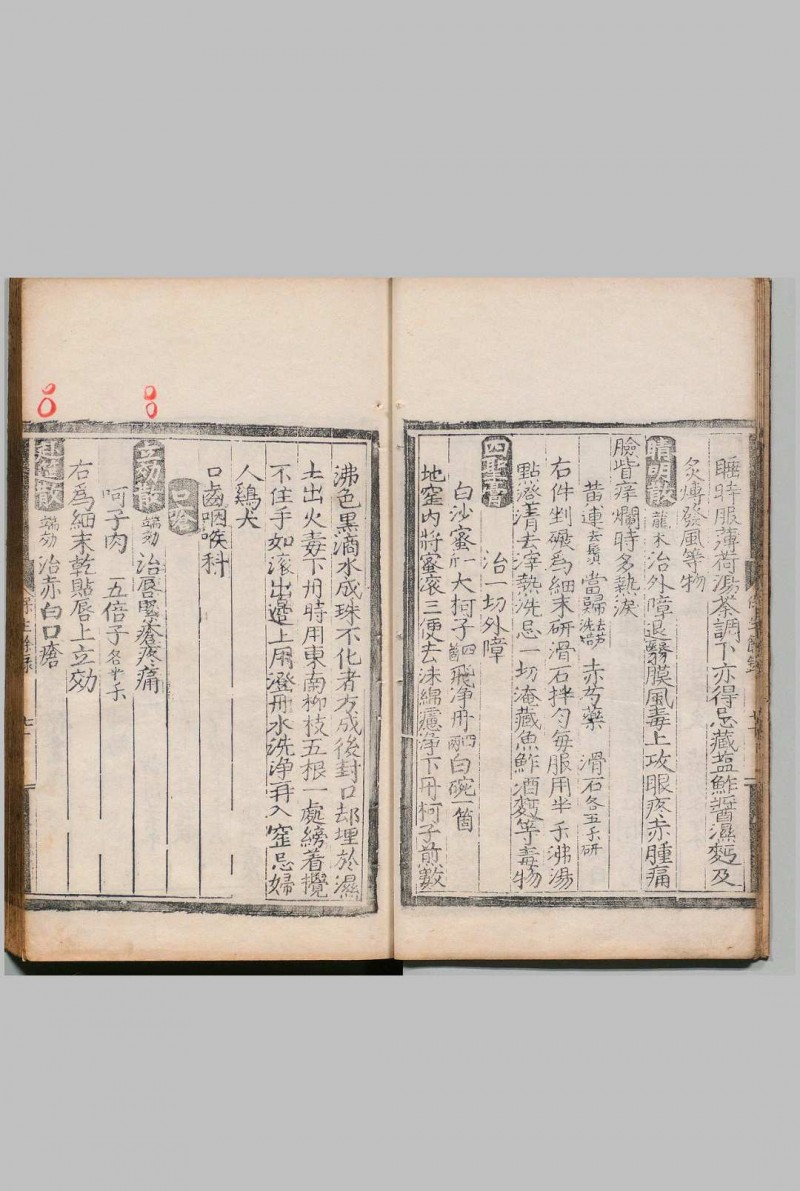 睡時服薄荷湯茶調下亦得忌藏盐鮓醬濕麪及
炙煿發風等物
睛明散 龍木 治外障退翳膜風毒上攻眼疼赤腫痛
臉眥痒爛時多熱淚
黄連去鬚 當歸去芦洗焙 赤芍藥 滑石各五多研
右件剉碾為細末研滑石拌勻每服用半多沸湯
點澄清去滓熱洗忌一切淹藏魚鮓酒麪等毒物
四聖膏 治一切外障
白沙蜜一斤 大柯子四箇 飛淨丹四兩 白碗一箇
地窒内將蜜滚三便去沫綿濾淨下丹柯子煎數
沸色黒滴水成珠不化者方成後封口却埋於濕
土出火毒下丹時用東南柳枝五根一處縍着攪
不住手如滚出邉上用澄丹水洗淨再入窒忌婦
人鷄犬
口齒咽喉科
口瘡
立効散 端効 治唇緊瘡疼痛
呵子肉 五倍子各半多
右為細末乾貼唇上立効
赴筵散 端効 治赤白口瘡